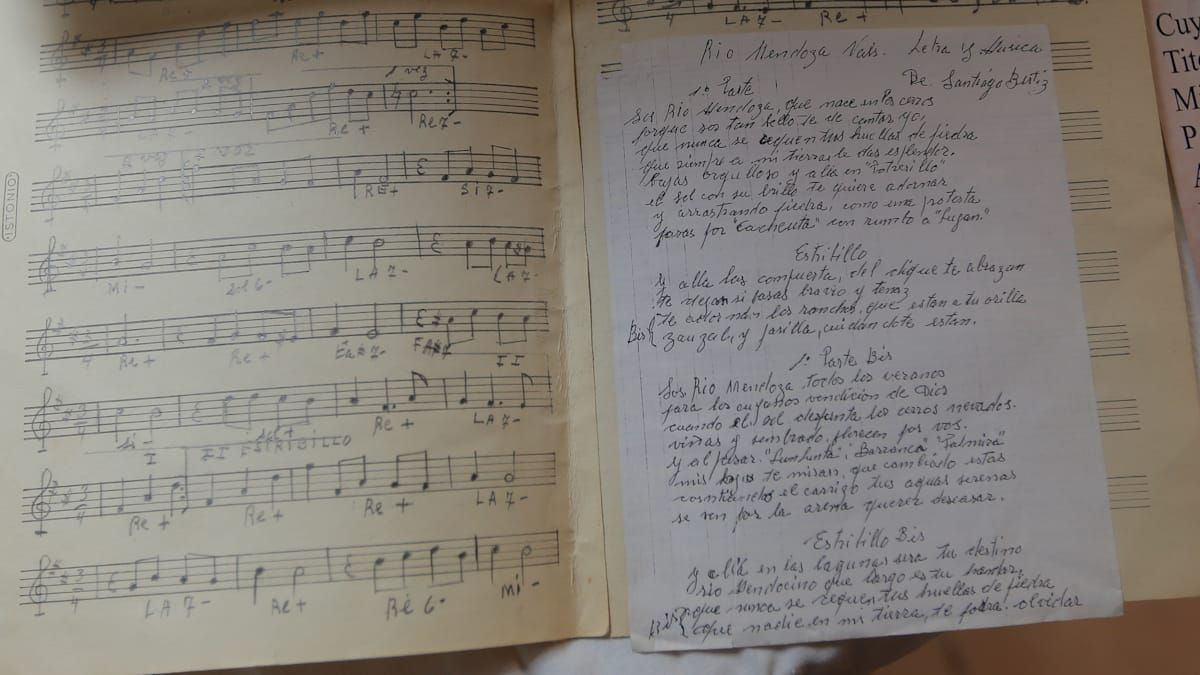 Re + Re + LA 7-
1 vez
Re + Re 7-
2 vez
RE + Si 7-
Mi - Sol 6- LA 7- LA 7-
Re + Re + Fa# 7- FA#7
Si - Sol + Re + LA 7- II
I II ESTRIBILLO
Re + Re + Re + LA 7-
LA 7- Re + Ré 6- Mi -
ISTONIO
LA 7- Re +
Rio Mendoza Vals. Letra y Musica
De. Santiago Bertiz
1º Parte
Sos Rio Mendoza, que nace en los cerros
porque sos tan bello te de cantar yo,
que nunca se sequen tus huellas de piedra
que siempre a mi tierra le das esplendor.
bajas orgulloso y alla en "Potrerillo"
el sol con su brillo te quiere adornar
y arrastrando piedra, como una protesta
pasas por "Cacheuta" con rumbo a "Lujan."
Estribillo
y alla las compuerta, del dique te abrazan
te dejan si pasas bravio y tenaz
te adornan los ranchos, que estan a tu orilla
Bis { y jarilla, cuidandote estan.
1º Parte Bis
Sos Rio Mendoza todos los veranos
para los cuyanos vendición de Dios
cuando el sol despunta los cerros nevados.
viñas y sembrado, florecen por vos.
y al pasar "Lunlunta", Barranca" "Palmira"
mis ojos te miran, que cambiado estas
el carrizo tus aguas serenas
se ven por la arena querer descasar.
Estribillo Bis
y allá en las lagunas sera tu destino
rio Mendocino que largo es tu
Bis { que nunca se sequen tus huellas de piedra
que nadie en mi tierra, te podra olvidar
Cuy
Tito
M
P